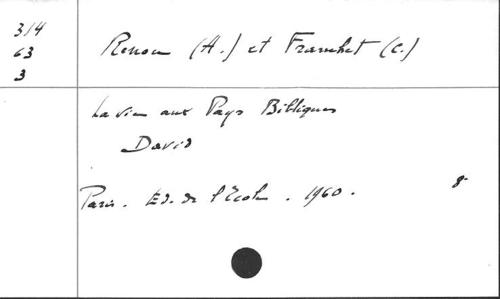 314
63
3
Renou (A.) et Franchet (C.)
La vie aux Pays Bibliques
David
Paris. Ed. de l'Ecole. 1960. 8